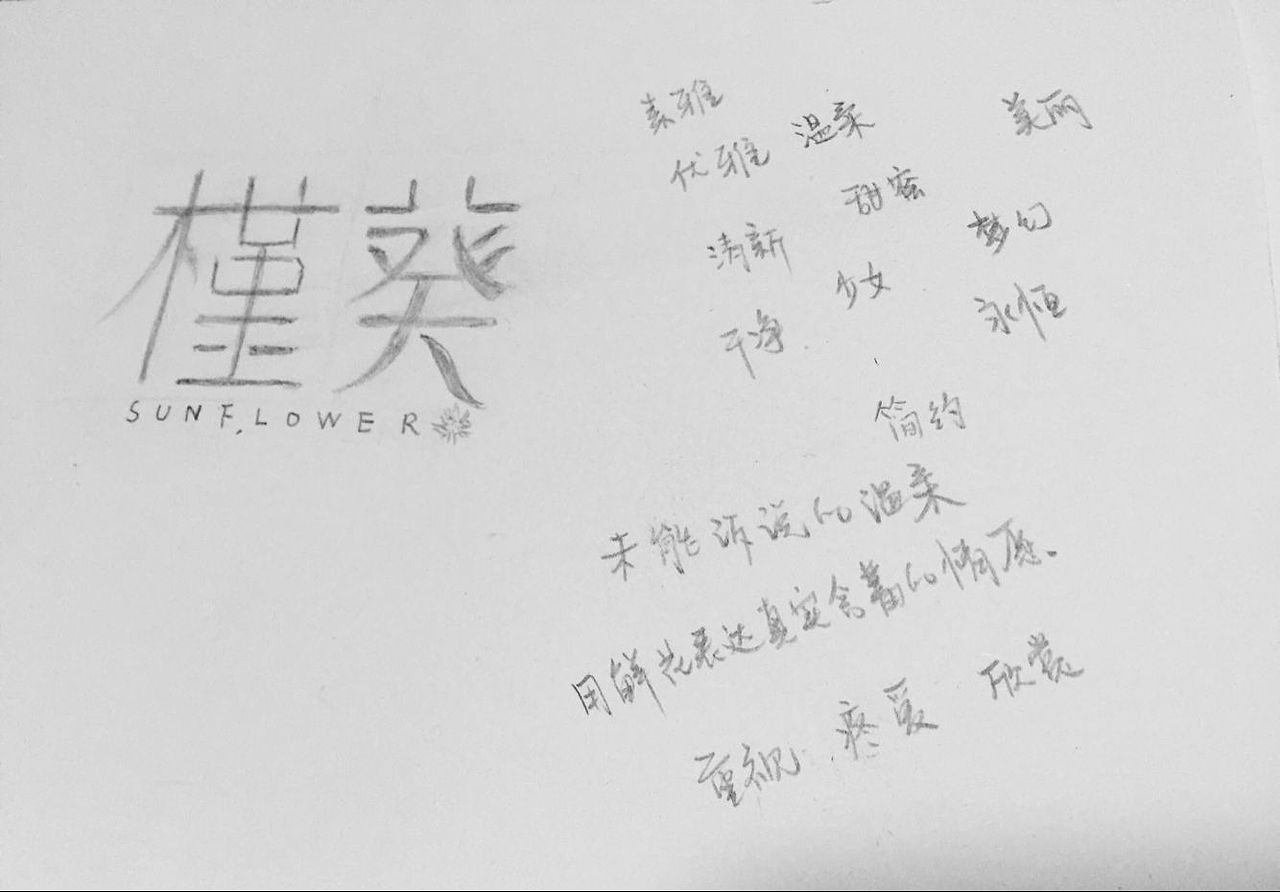 槿葵
SUNFLOWER
素雅
优雅
温柔
美丽
甜蜜
清新
梦幻
少女
干净
永恒
简约
未能诉说的温柔
用鲜花表达真实含蓄的情愿。
重视 疼爱 欣赏